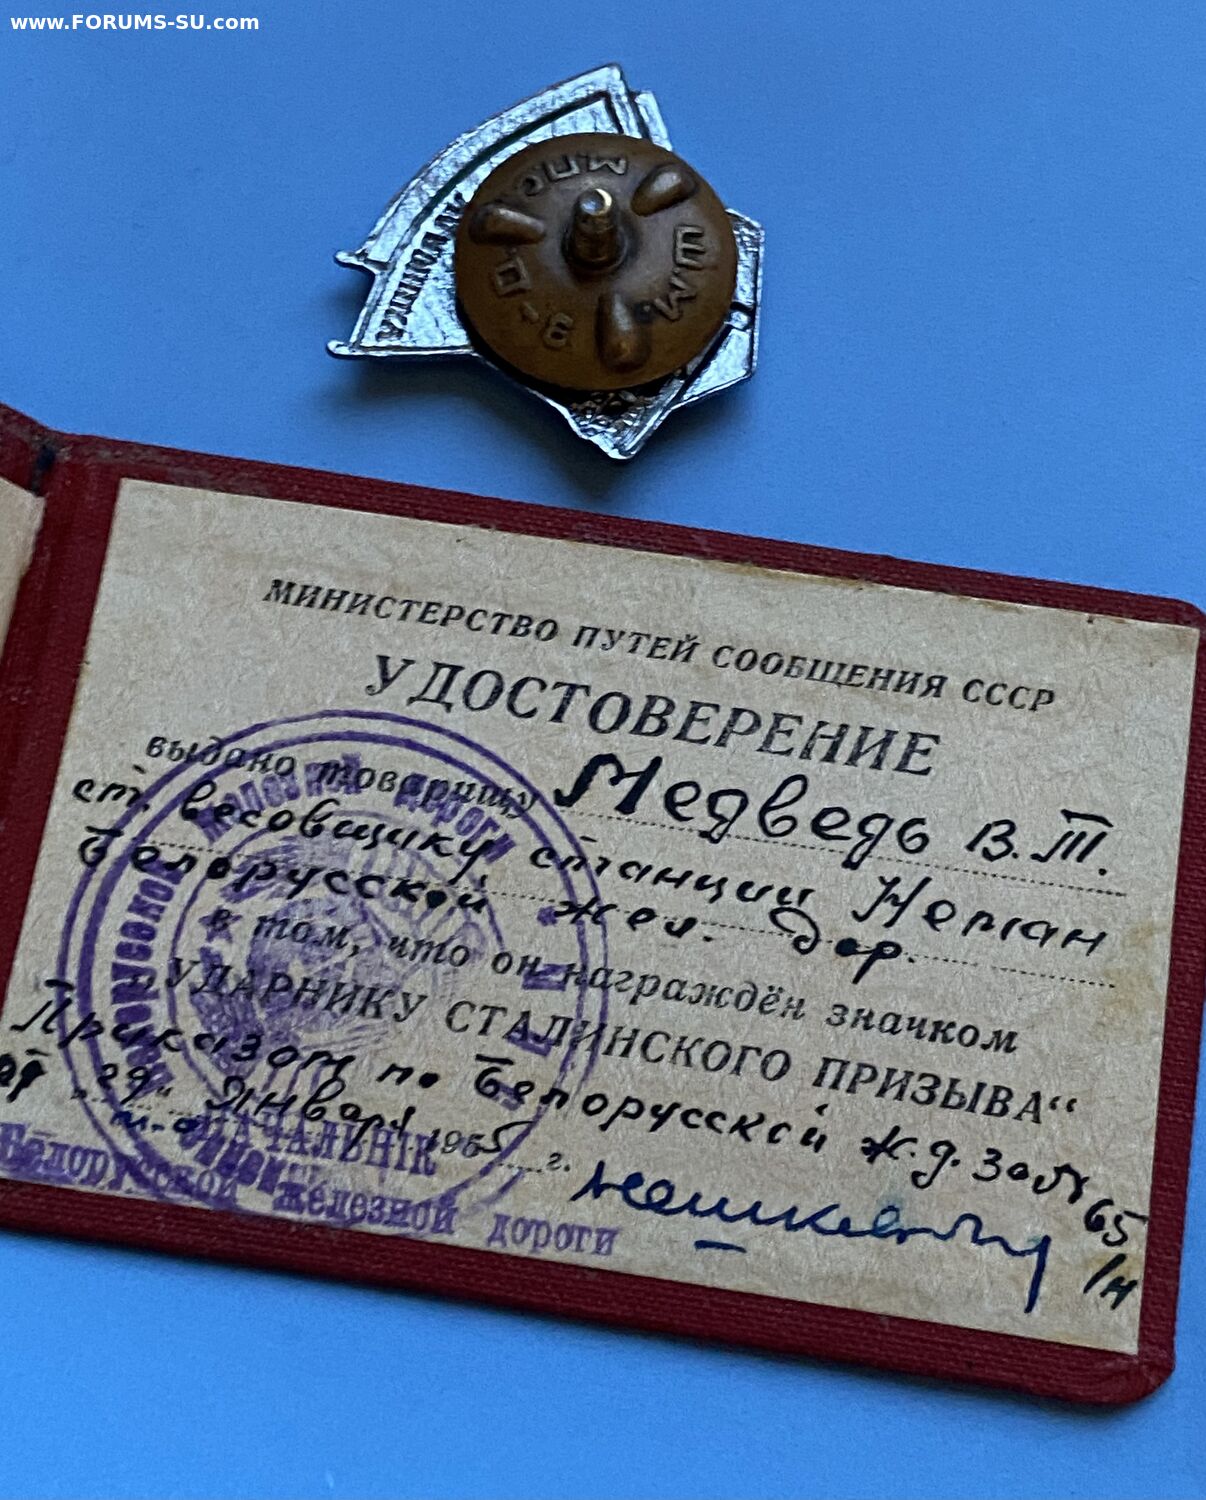 www.FORUMS-SU.com
МПС
Ш.М.
D-8
МИНИСТЕРСТВО ПУТЕЙ СООБЩЕНИЯ СССР
УДОСТОВЕРЕНИЕ
выдано товарищу Медведь В.Т.
ст. весовщику станции Неман
Белорусской жел. дор.
в том, что он награждён значком
УДАРНИКУ СТАЛИНСКОГО ПРИЗЫВА“
Приказом по Белорусской ж.д. за № 65/н
Января 1955 г.
НАЧАЛЬНИК
Белорусской железной дороги
Белорусской железной дороги